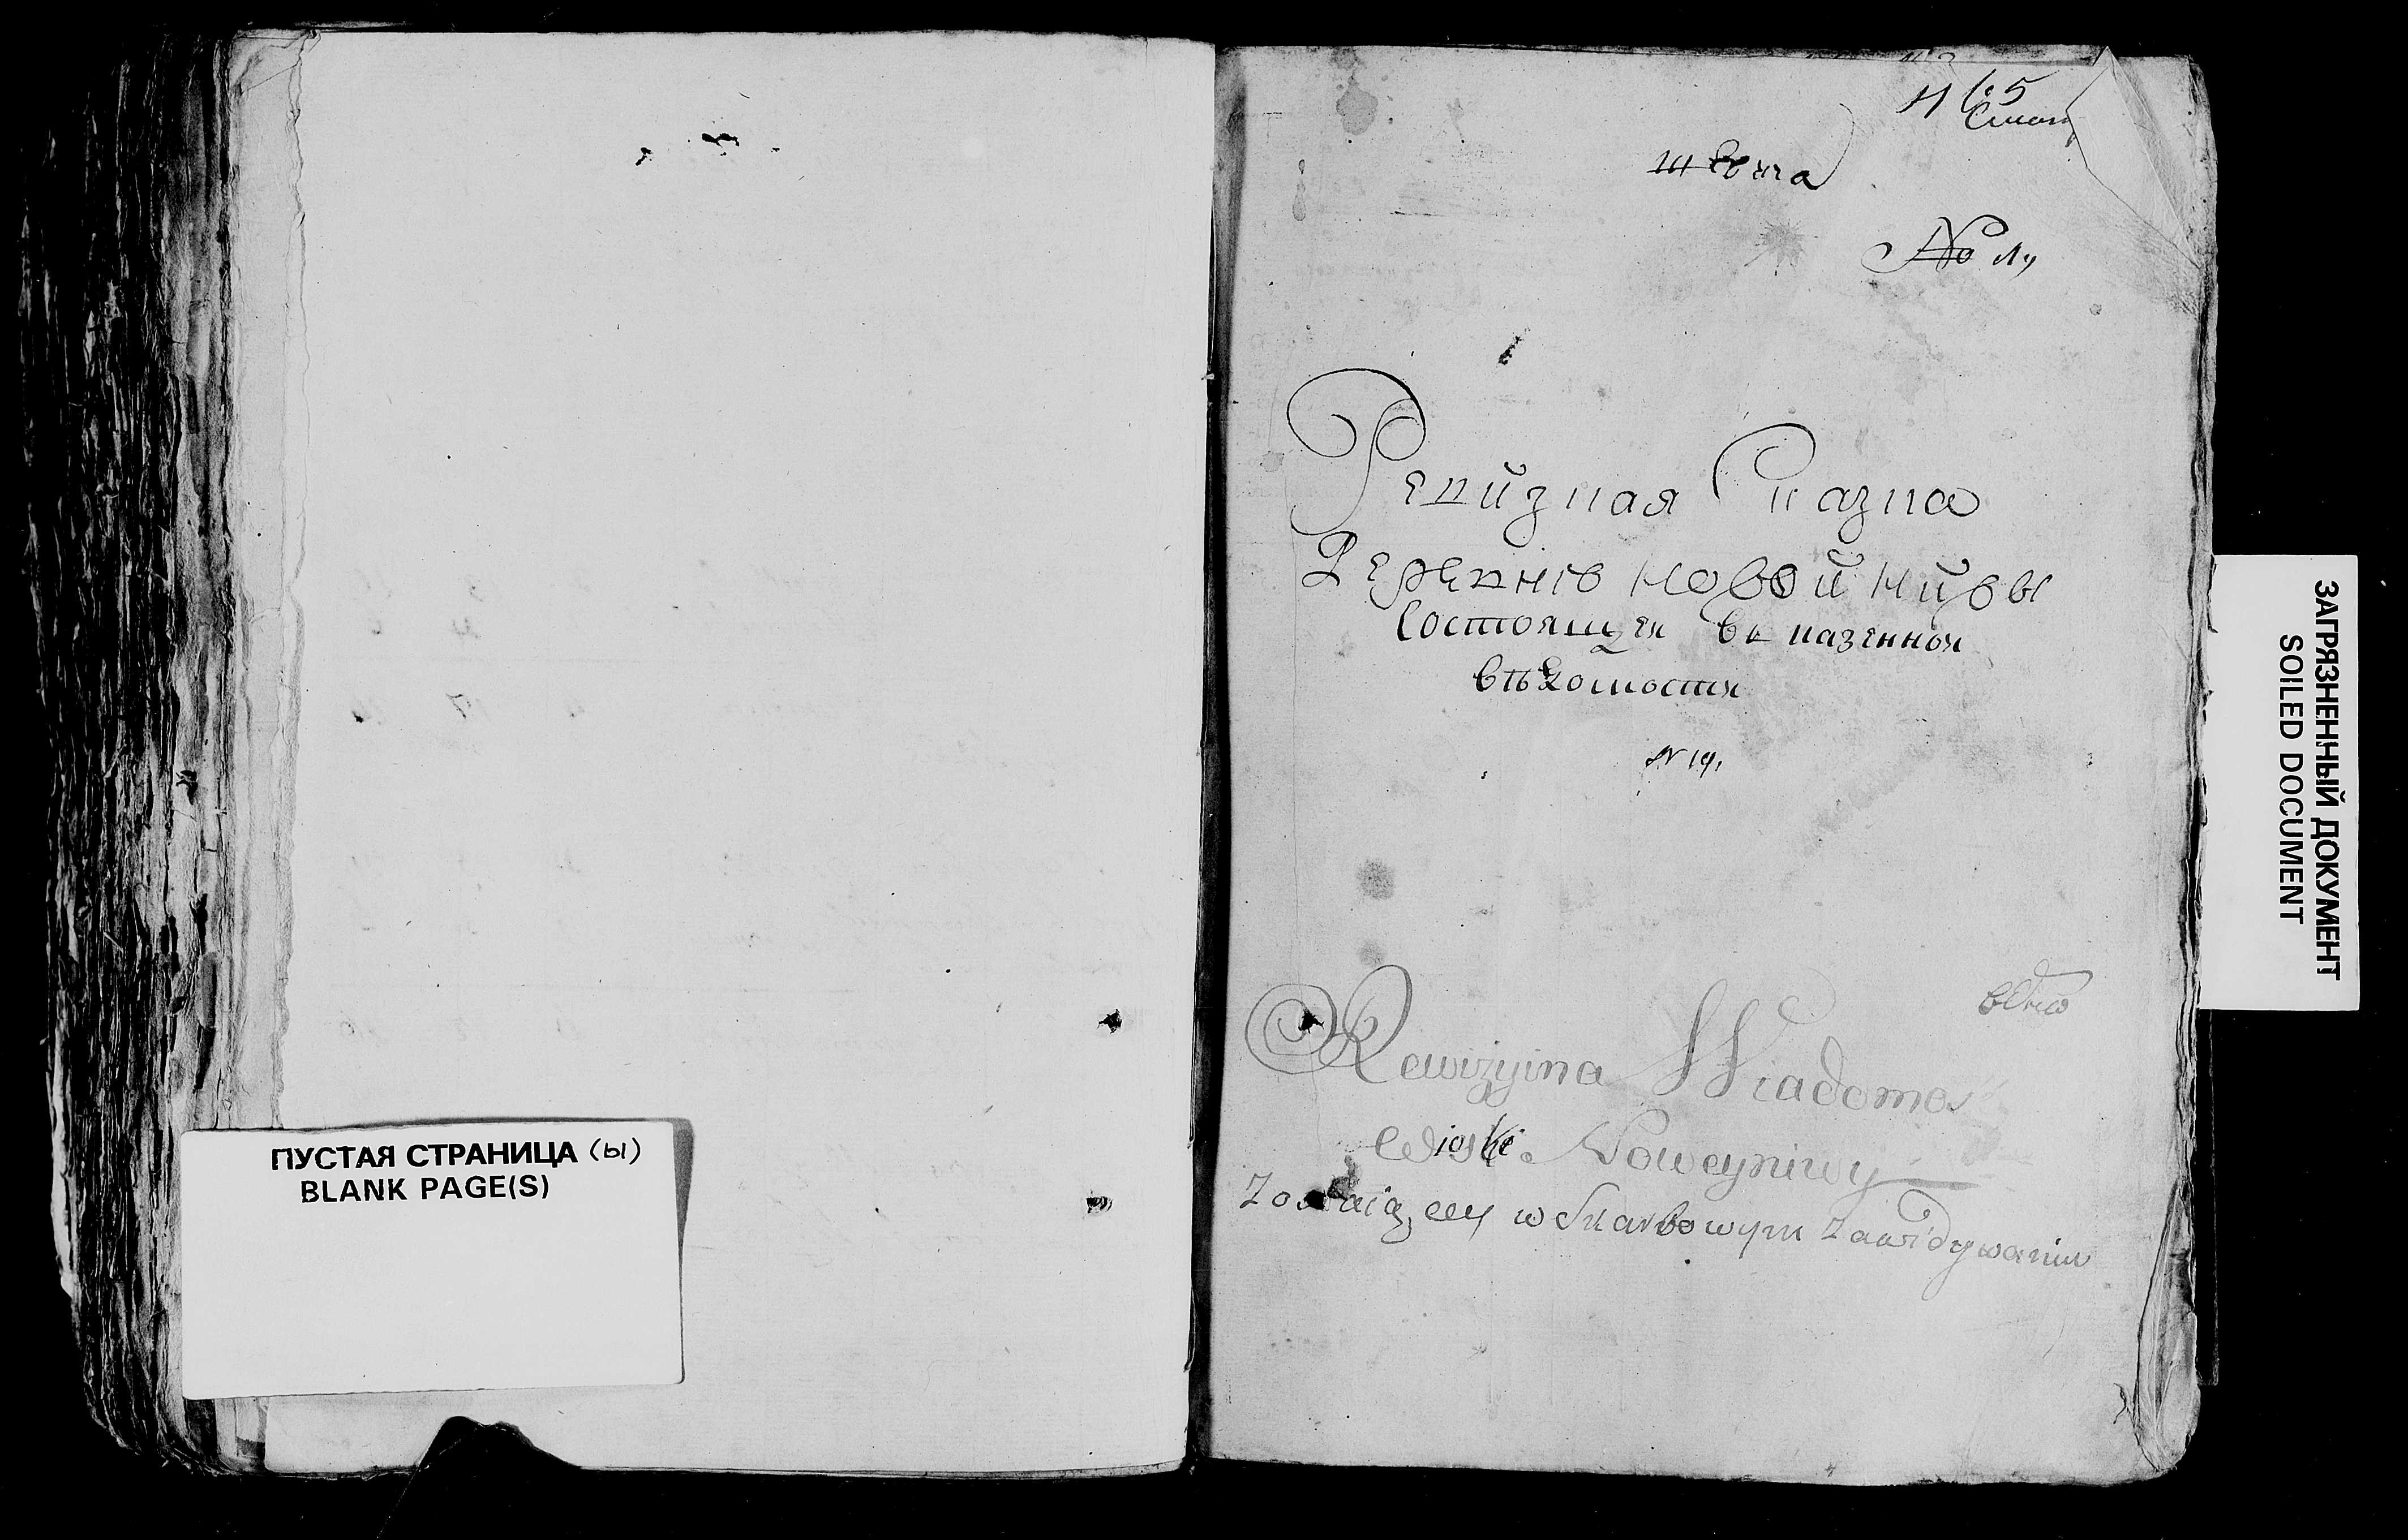 ПУСТАЯ СТРАНИЦА (ы)
BLANK PAGE(S)
№
Ревизная Сказка
Деревнѣ новой нивы
Состоящея въ казенной
вѣдомости
N 19.
Rewizyina Wiadomo
Wioski Noweyniwy
Zostaiącey w Skarbowym Zawidywaniu
ЗАГРЯЗНЕННЫЙ ДОКУМЕНТ
SOILED DOCUMENT